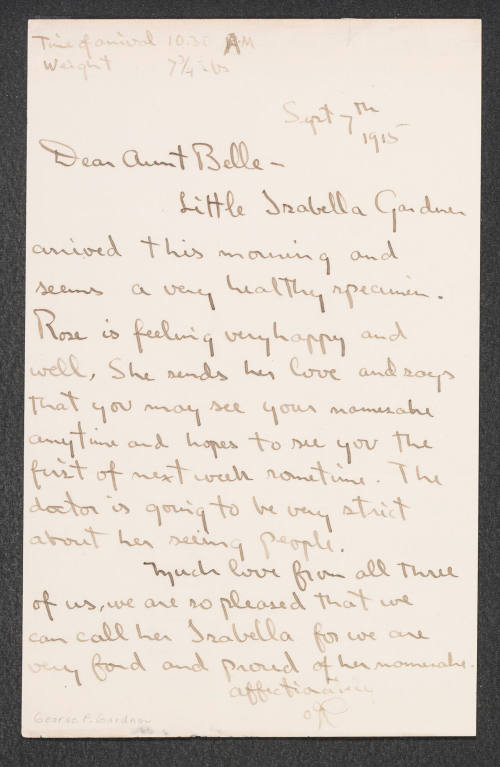 Time of arrival 10.35 AM
Weight 7 3/4 lbs
Sept 7th
1915
Dear Aunt Belle -
Little Isabella Gardner
arrived this morning and
seems a very healthy specimen.
Rose is feeling very happy and
well, She sends her love and says
that you may see your namesake
anytime and hopes to see you the
first of next week sometime. The
doctor is going to be very strict
about her seeing people.
Much love from all three
of us, we are so pleased that we
can call her Isabella for we are
very fond and proud of her namesake.
affectionately
George P. Gardner